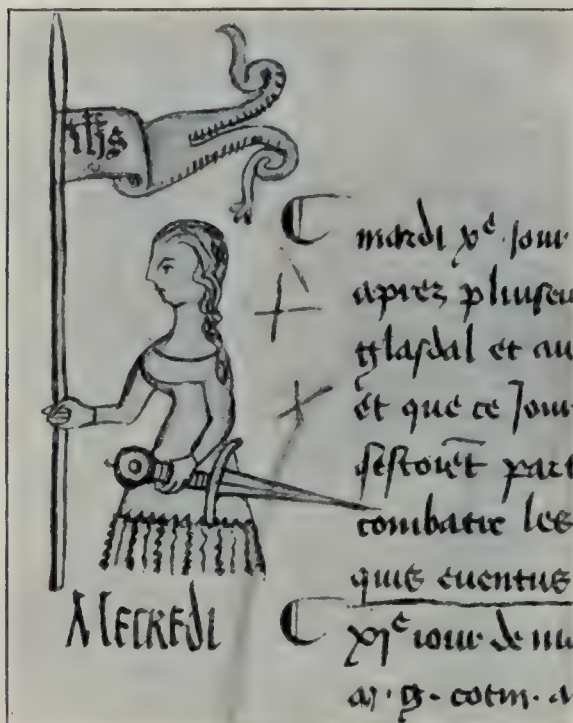 ihs
mardi xe jour
aprez pluseu
glasdal et au
et que ce jour
sestoiet part
combatre les
quis euentus
MERCREDI
xje iour de ma
a